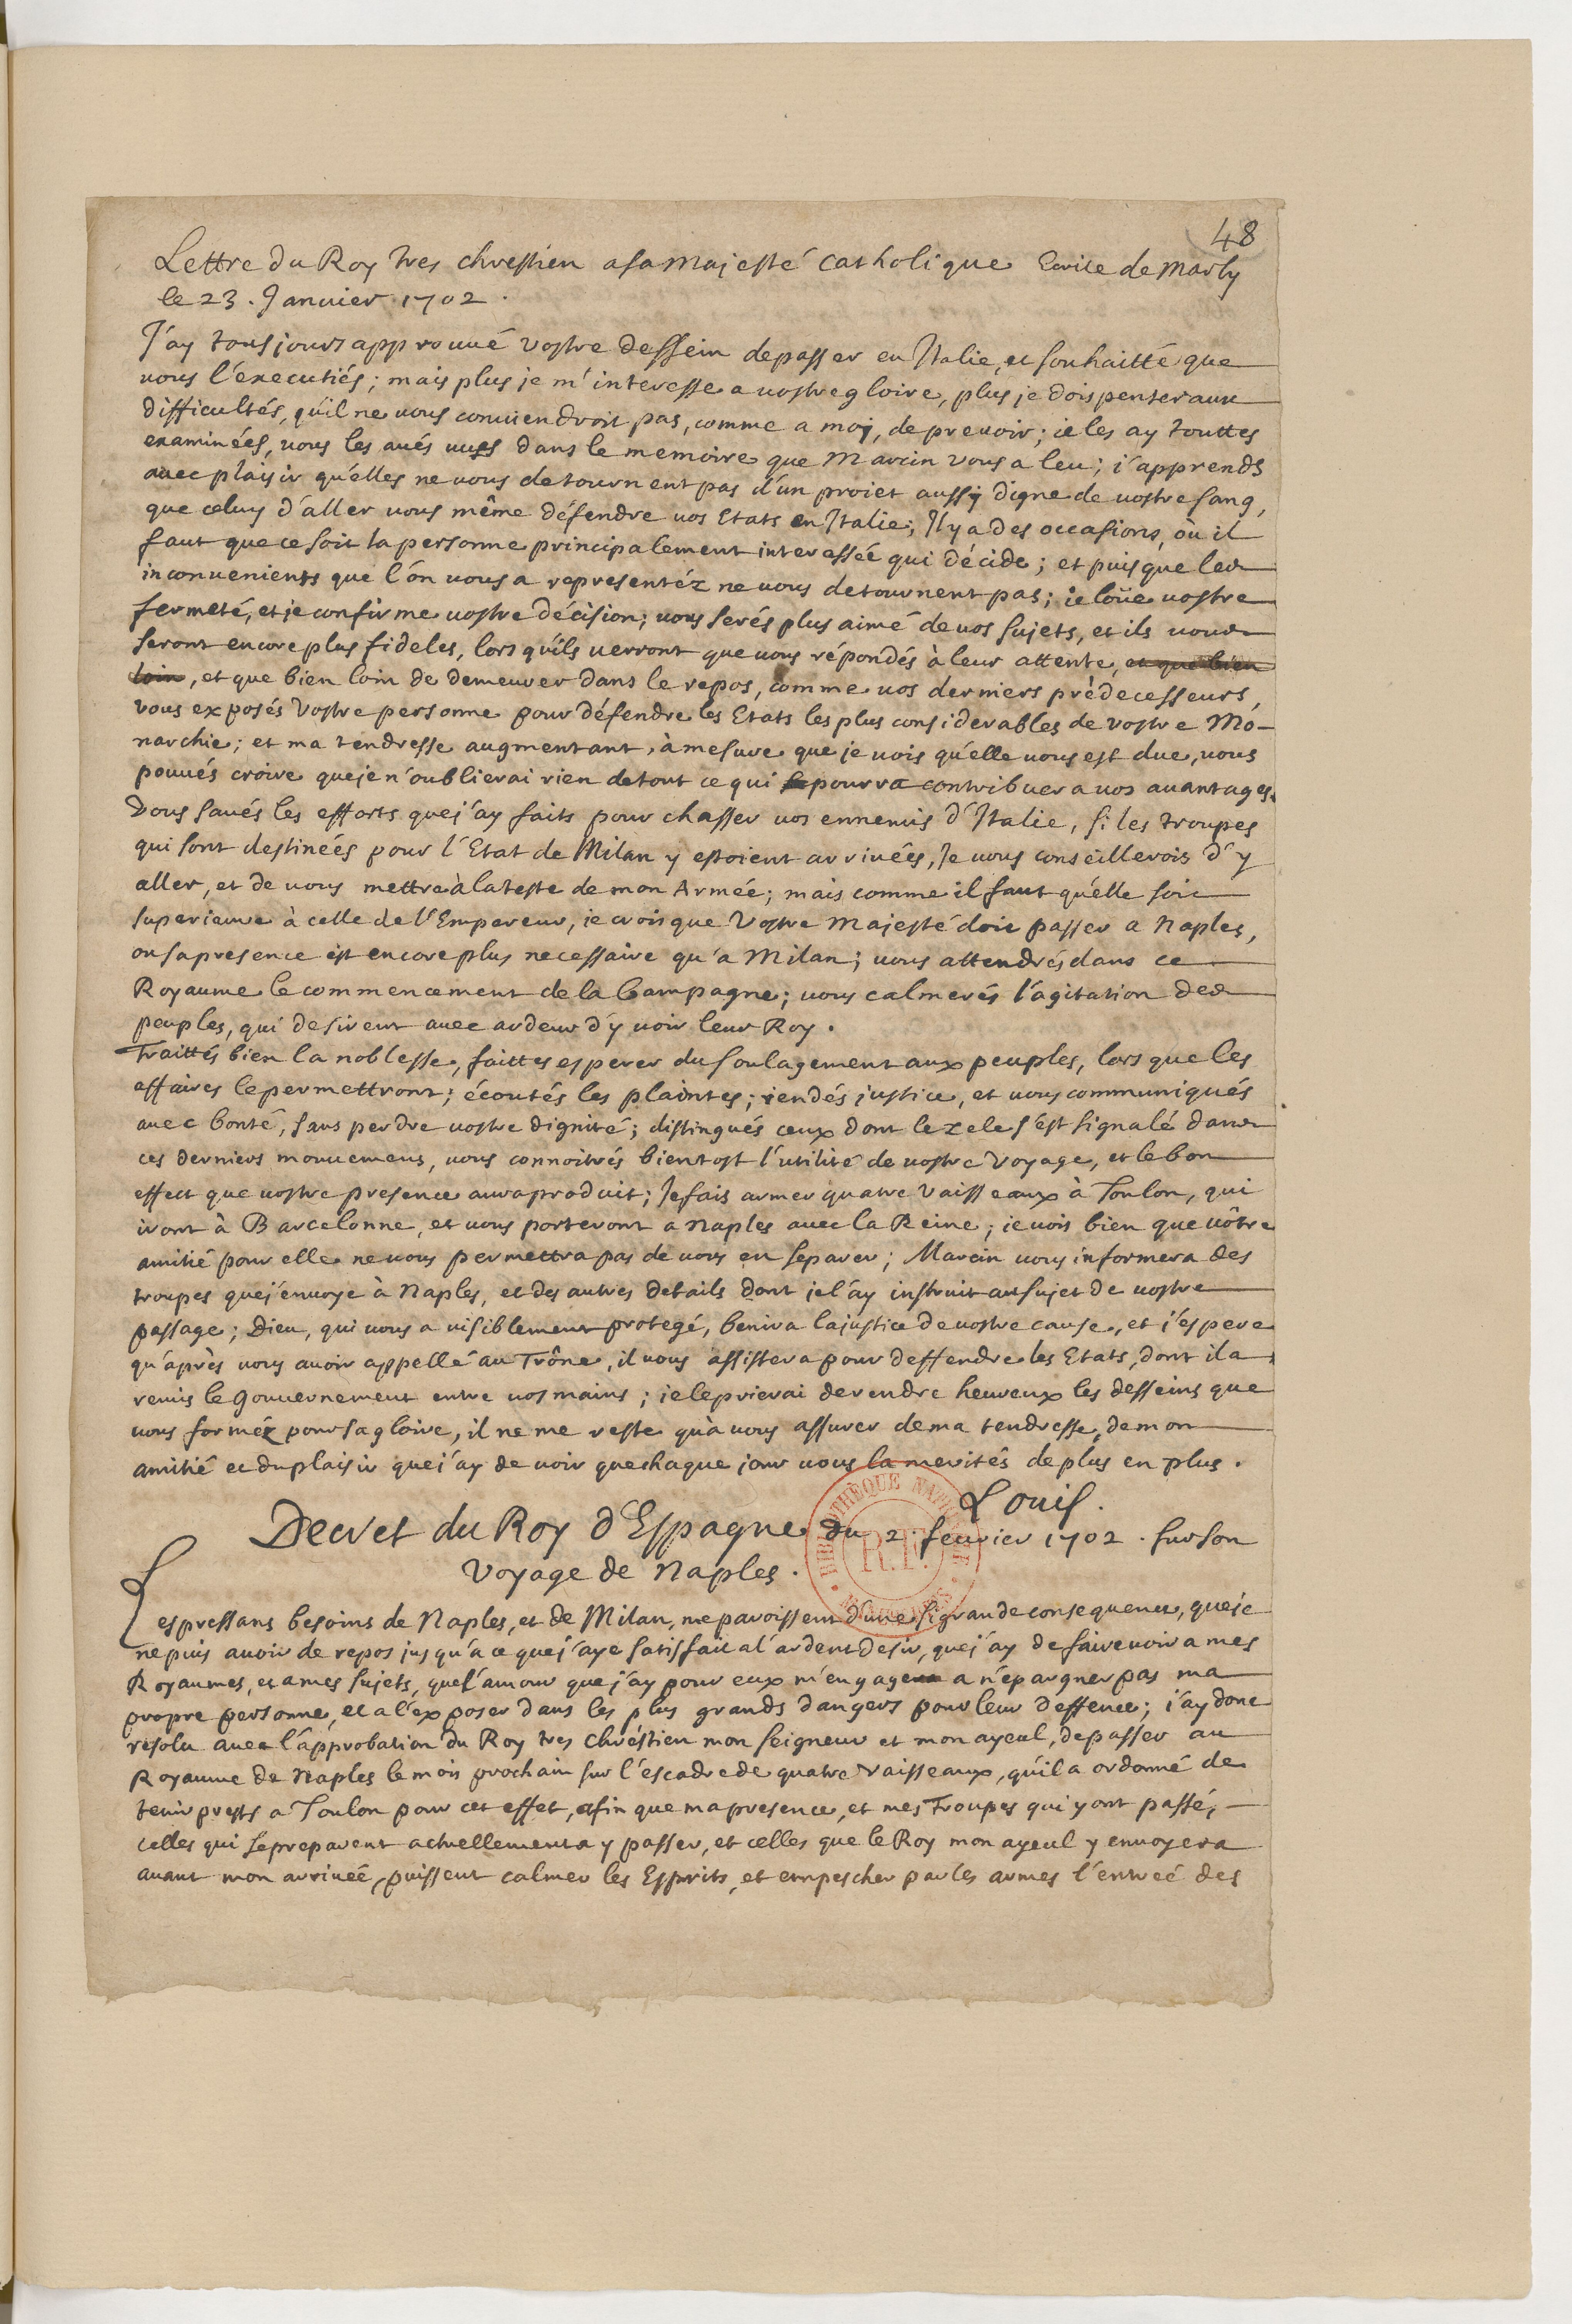 48
Lettre du Roy tres chrestien a sa Majesté Catholique Ecrite de Marly
le 23. Janvier 1702.
J'ay tousjours approuué vostre dessein de passer en Italie, et souhaitté que
vous l'executiés; mais plus je m'interesse a vostre gloire, plus je dois penser aux
difficultés, qu'il ne vous conuiendroit pas, comme a moy, de preuoir; ie les ay touttes
examinées, vous les aués vues dans le memoire que Marcin vous a leu; i'apprends
auec plaisir qu'elles ne vous detournent pas d'un proiet aussy digne de vostre sang,
que celuy d'aller vous même défendre vos Etats en Italie; Il y a des occasions, où il
faut que ce soit la personne principalement interessée qui décide; et puisque les
inconuenients que l'on vous a representéz ne vous detournent pas; ie loüe vostre
fermeté, et je confirme vostre décision; vous serés plus aimé de vos sujets, et ils vous
seront encore plus fideles, lors qu'ils verront que vous répondés à leur attente, et que bien
loin, et que bien loin de demeurer dans le repos, comme vos derniers prédecesseurs,
vous exposés vostre personne pour défendre les Etats les plus considerables de vostre Mo-
narchie; et ma tendresse augmentant, à mesure que je vois qu'elle vous est due, vous
pouués croire que je n'oublierai rien de tout ce qui pourra contribuer a vos auantages.
Vous saués les efforts que j'ay faits pour chasser vos ennemis d'Italie, si les troupes
qui sont destinées pour l'Etat de Milan y estoient arriuées, Je vous conseillerois d'y
aller, et de vous mettre à la teste de mon Armée; mais comme il faut qu'elle soit
superieure à celle de l'Empereur, ie crois que Vostre Majesté doit passer a Naples,
ou sa presence est encore plus necessaire qu'a Milan; vous attendrés dans ce
Royaume le commencement de la Campagne; vous calmerés l'agitation des
peuples, qui desirent auec ardeur d'y voir leur Roy.
Traittés bien la noblesse, faittes esperer du soulagement aux peuples, lors que les
affaires le permettront; écoutés les plaintes; rendés justice, et vous communiqués
auec bonté, sans perdre vostre dignité; distingués ceux dont le zele s'est signalé dans
ces derniers mouuemens, vous connoitrés bientost l'utilité de vostre voyage, et le bon
effect que vostre presence aura produit; Je fais armer quatre Vaisseaux à Toulon, qui
iront à Barcelonne, et vous porteront a Naples auec la Reine; ie vois bien que vôtre
amitié pour elle ne vous permettra pas de vous en separer; Marcin vous informera des
troupes que j'enuoye à Naples, et des autres details dont je l'ay instruit au sujet de vostre
passage; Dieu, qui vous a visiblement protegé, benira la justice de vostre cause, et i'espere
qu'après vous auoir appellé au Trône, il vous assistera pour deffendre les Etats, dont il a
remis le Gouuernement entre vos mains; ie le prierai de rendre heureux les desseins que
vous formés pour sa gloire, il ne me reste qu'à vous assurer de ma tendresse, de mon
amitié et du plaisir que j'ay de voir que chaque jour vous la merités de plus en plus.
Louis.
Decret du Roy d'Espagne du 2. feurier 1702. sur son
Voyage de Naples.
Les pressans besoins de Naples, et de Milan, me paroissent d'une si grande consequence, que je
ne puis auoir de repos jusqu'a ce que j'aye satisfait a l'ardent desir, que j'ay de faire voir a mes
Royaumes, et a mes sujets, que l'amour que j'ay pour eux m'engage a n'épargner pas ma
propre personne, et a l'exposer dans les plus grands dangers pour leur deffence; i'ay donc
résolu auec l'approbation du Roy tres chréstien mon seigneur et mon ayeul, de passer au
Royaume de Naples le mois prochain sur l'escadre de quatre vaisseaux, qu'il a ordonné de
tenir prests a Toulon pour cet effet, afin que ma presence, et mes Troupes qui y ont passé,
celles qui se preparent actuellement a y passer, et celles que le Roy mon ayeul y enuoyera
auant mon arriuée, puissent calmer les Esprits, et empescher par les armes l'entreé des
BIBLIOTHÈQUE NATIONALE
R.F.